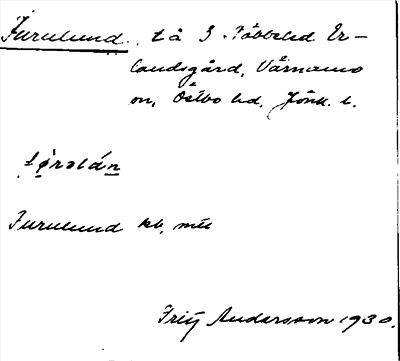 Furulund, tå 3 Tåbbeled Er-
landsgård, Värnamo
sn, Östbo hd, Jönk. l.
Furulund kb, mtl
Fritz Andersson 1930.